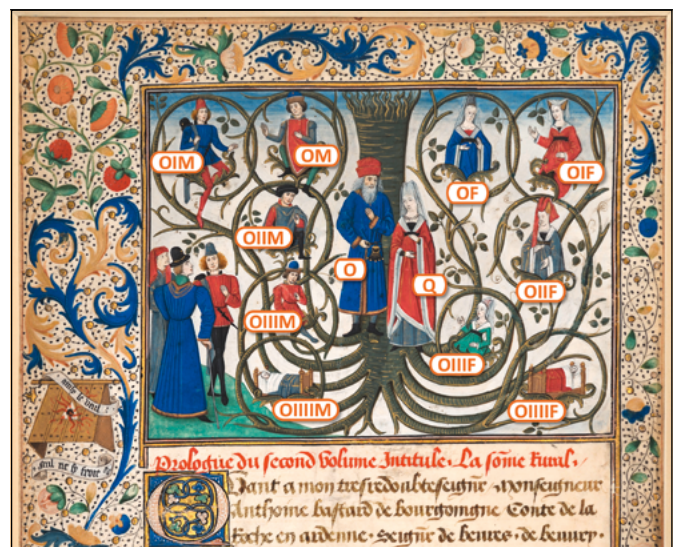 OIM
OM
OF
OIF
OIIM
O
Q
OIIF
OIIIM
OIIIF
OIIIIM
OIIIIF
nul ne sy frote
Prologue du second volume Intitule. La sõme Rural.
Quant a mon tresredoubte seigñr Monseigneur
Anthoine bastard de bourgoingne Conte de la
Roche en ardenne. Seigñr de beures. de beuury.